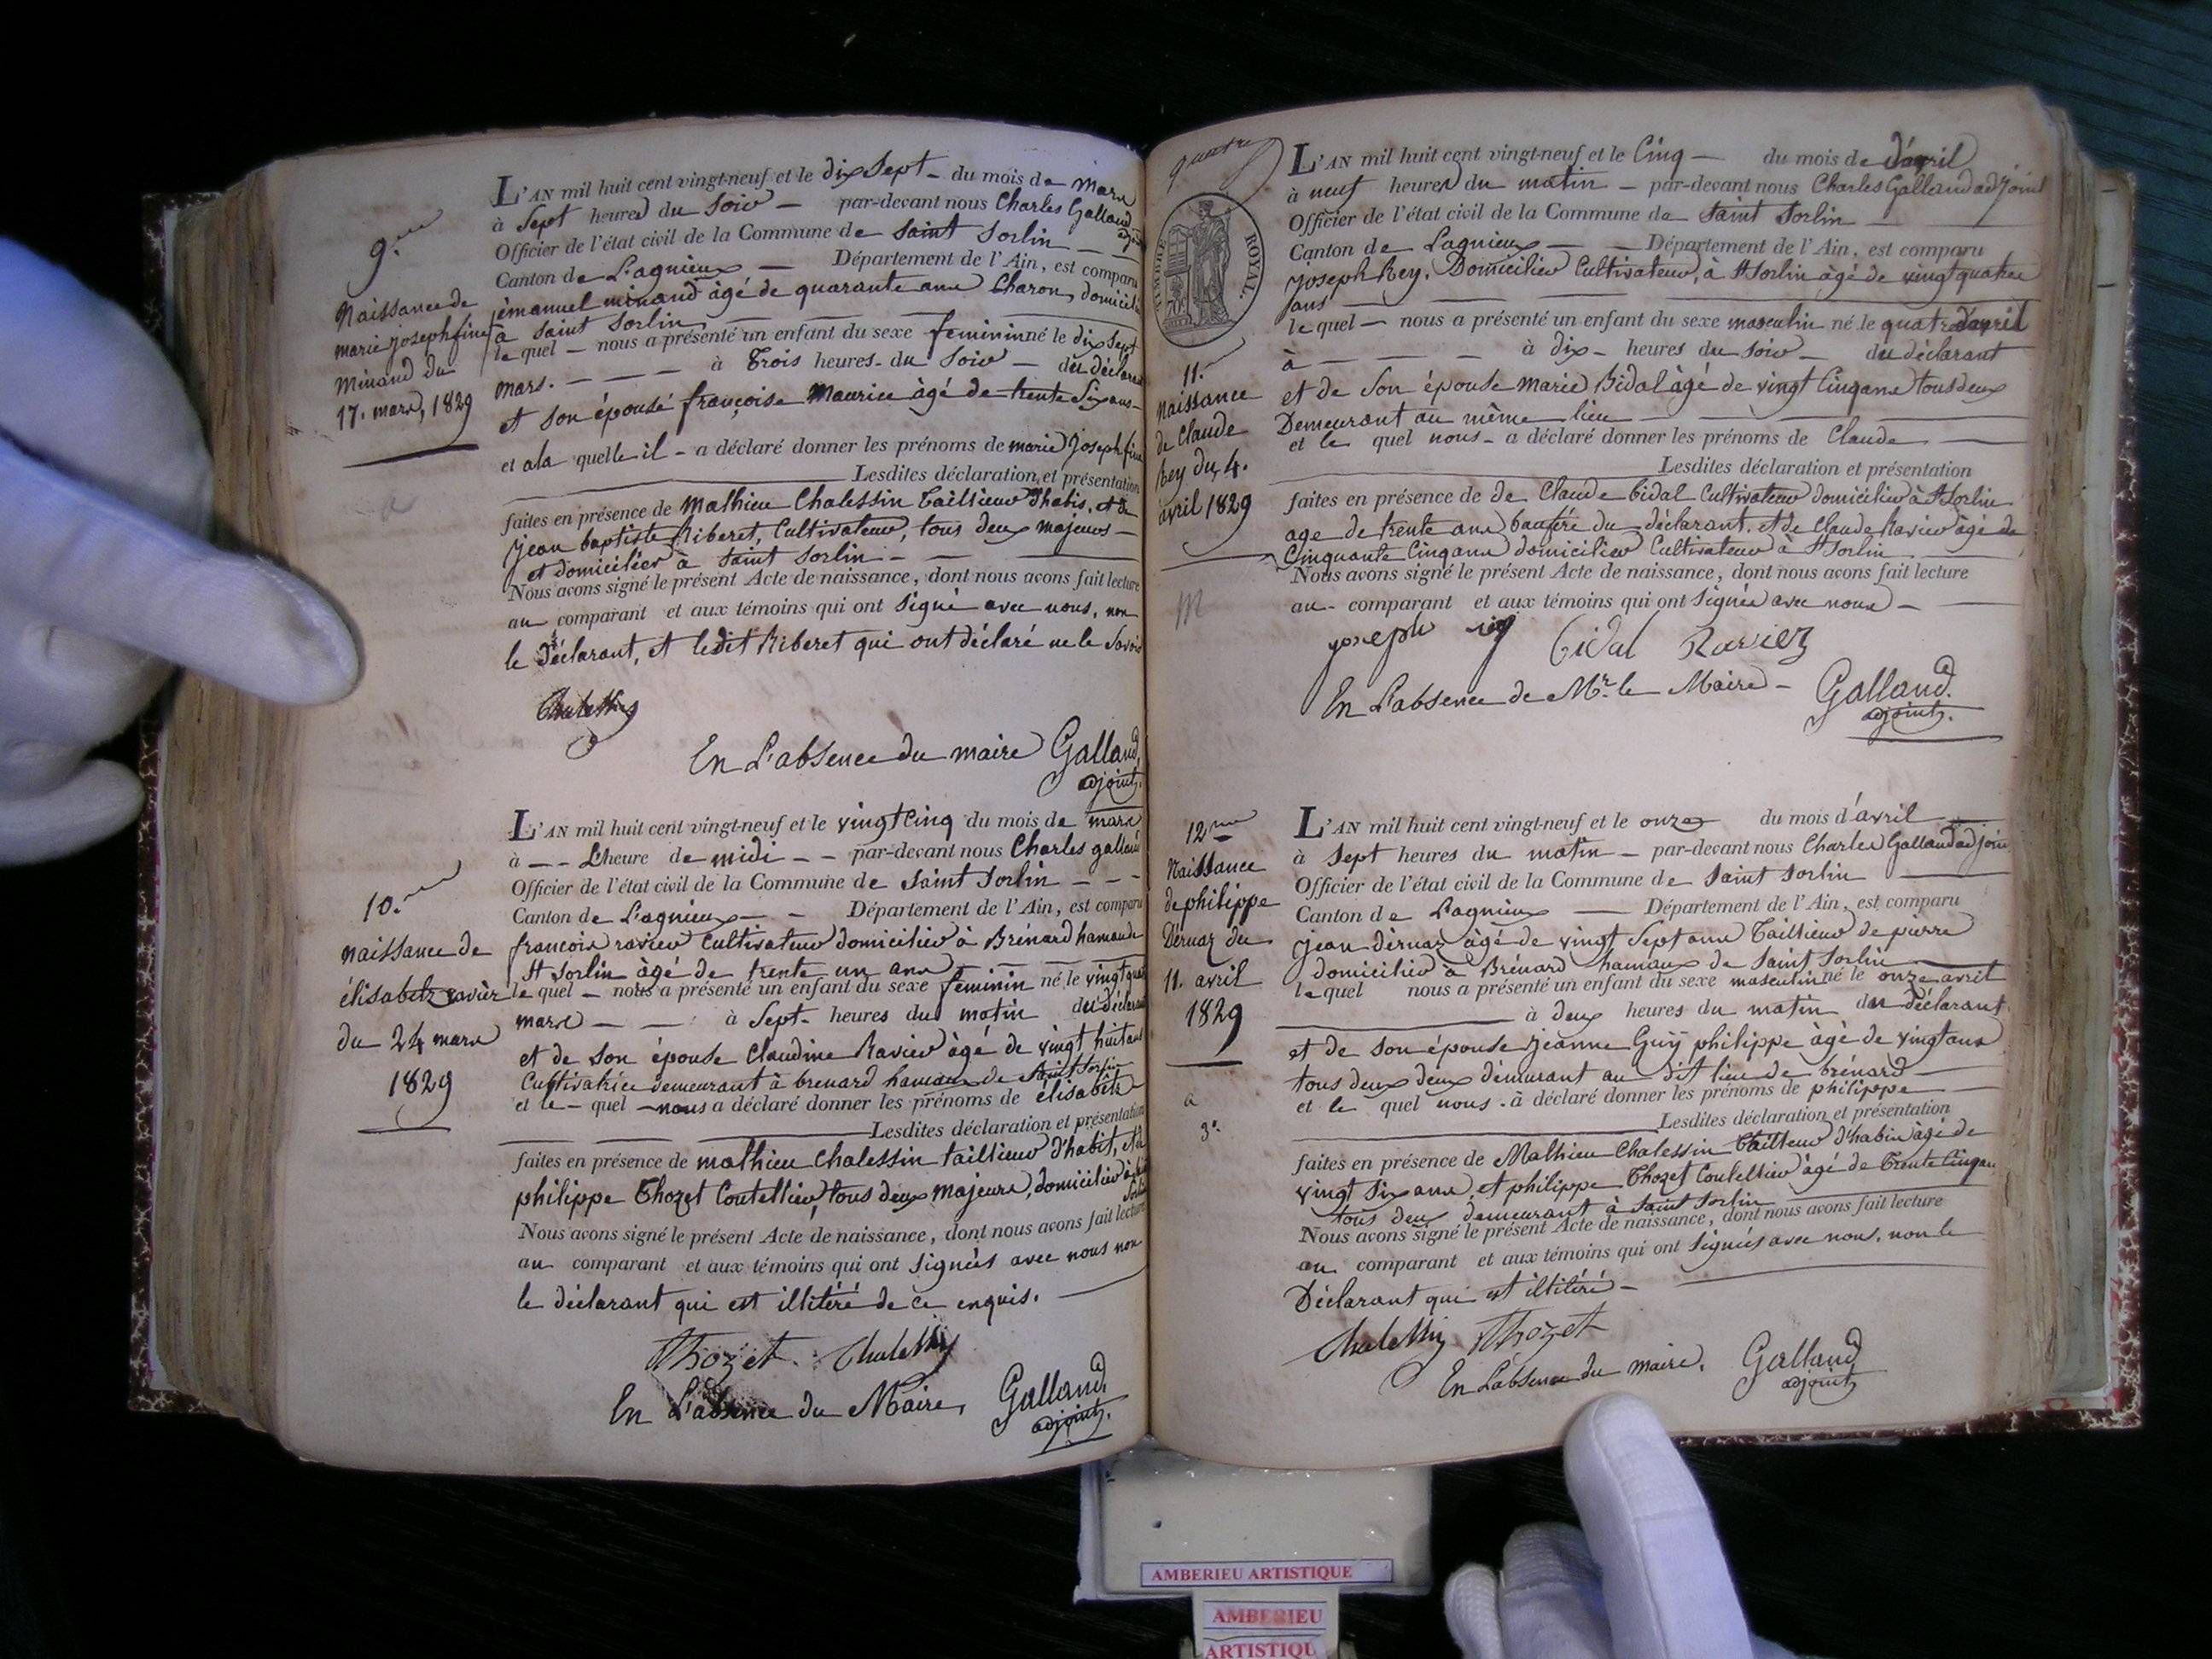 9.me
Naissance de
marie josephfine
Minand du
17. mars, 1829
L'AN mil huit cent vingt-neuf et le dix Sept du mois de Mars
à Sept heures du Soir par-devant nous Charles Galland adjt
Officier de l'état civil de la Commune de Saint Sorlin
Canton de L'agnieux Département de l'Ain, est comparu
jémanuel minand âgé de quarante ans Charon, domicilié
a Saint Sorlin
le quel nous a présenté un enfant du sexe feminin né le dix Sept
mars. à Trois heures du Soir du déclarant
et son épouse françoise Maurice âgé de trente Six ans
et ala quelle il a déclaré donner les prénoms de marie Josephfine
Lesdites déclaration et présentation
faites en présence de Mathieu Chalessin Taillieur d'habis, et de
jean baptiste Riberet, Cultivateur, tous deux majeurs
et domiciliés à Saint Sorlin
Nous avons signé le présent Acte de naissance, dont nous avons fait lecture
au comparant et aux témoins qui ont Signé avec nous, non
le déclarant, et ledit Riberet qui ont déclaré ne le Savoir
Chalessin
En L'absence du maire Galland,
adjoint.
10.me
naissance de
élisabetz ravier
du 24 mars
1829
L'AN mil huit cent vingt-neuf et le vingt Cinq du mois de mars
à L'heure de midi par-devant nous Charles galland
Officier de l'état civil de la Commune de Saint Sorlin
Canton de L'agnieux Département de l'Ain, est comparu
francois ravier Cultivateur domicilier à Brénard hamaude
St Sorlin âgé de trente un ans
le quel nous a présenté un enfant du sexe feminin né le vingt quatre
mars à Sept heures du matin du déclarant
et de son épouse Claudine Ravier âgé de vingt huit ans
Cultivatrice demeurant à brenard hamaux de Saint Sorlin
et le quel nous a déclaré donner les prénoms de élisabete
Lesdites déclaration et présentation
faites en présence de mathieu Chalessin taillieur d'habit, et de
philippe Thozet Coutellier, tous deux majeurs, domicilier à St
Sorlin
Nous avons signé le présent Acte de naissance, dont nous avons fait lecture
au comparant et aux témoins qui ont Signés avec nous non
le déclarant qui est illitéré de ce enquis.
Thozet. Chalessin
En L'absence du Maire, Galland,
adjoint.
quatre
TIMBRE ROYAL.
11.e
Naissance
de Claude
Rey du, 4.
avril 1829
M
L'AN mil huit cent vingt-neuf et le Cinq du mois de d'avril
à neuf heures du matin par-devant nous Charles Galland adjoint
Officier de l'état civil de la Commune de Saint Sorlin
Canton de Lagnieux Département de l'Ain, est comparu
joseph Rey. Domicilier Cultivateur, à St Sorlin âgé de vingt quatre
ans
le quel nous a présenté un enfant du sexe masculin né le quatre d'avril
à à dix heures du soir du déclarant
et de Son épouse Marie Bidal âgé de vingt Cinq ans tous deux
Demeurant au même lieu
et le quel nous a déclaré donner les prénoms de Claude
Lesdites déclaration et présentation
faites en présence de de Claude bidal Cultivateur domicilier à St Sorlin
age de trente ans baufére du déclarant. et de Claude Ravier âgé de
Cinquante Cinq ans domicilier Cultivateur à St Sorlin
Nous avons signé le présent Acte de naissance, dont nous avons fait lecture
au comparant et aux témoins qui ont Signés avec nous
joseph rey Bidal Ravier
En L'absence de Mr. le Maire Galland.
adjoint.
12.me
Naissance
de philippe
Dérnaz du
11. avril
1829
a
3e
L'AN mil huit cent vingt-neuf et le onze du mois d'avril
à Sept heures du matin par-devant nous Charles Galland adjoint
Officier de l'état civil de la Commune de Saint Sorlin
Canton de Lagnieux Département de l'Ain, est comparu
jean dérnaz âgé de vingt Sept ans Taillieur de pierre
domicilier à Brénard hamaux de Saint Sorlin
le quel nous a présenté un enfant du sexe masculin né le onze avril
à deux heures du matin du déclarant
et de son épouse jeanne Guÿ philippe âgé de vingt ans
tous deux deux démurant au dit lieu de brénard
et le quel nous à déclaré donner les prénoms de philippe
Lesdites déclaration et présentation
faites en présence de Mathieu Chalessin tailleur d'habis âgé de
vingt Six ans, et philippe Thozet Coutellier âgé de Trente Cinq ans
tous deux demeurant à Saint Sorlin
Nous avons signé le présent Acte de naissance, dont nous avons fait lecture
au comparant et aux témoins qui ont Signés avec nous, non le
Déclarant qui est illitéré
Chalessin Thozet
En L'absence du maire. Galland
adjoint
AMBERIEU ARTISTIQUE
AMBERIEU
ARTISTIQU